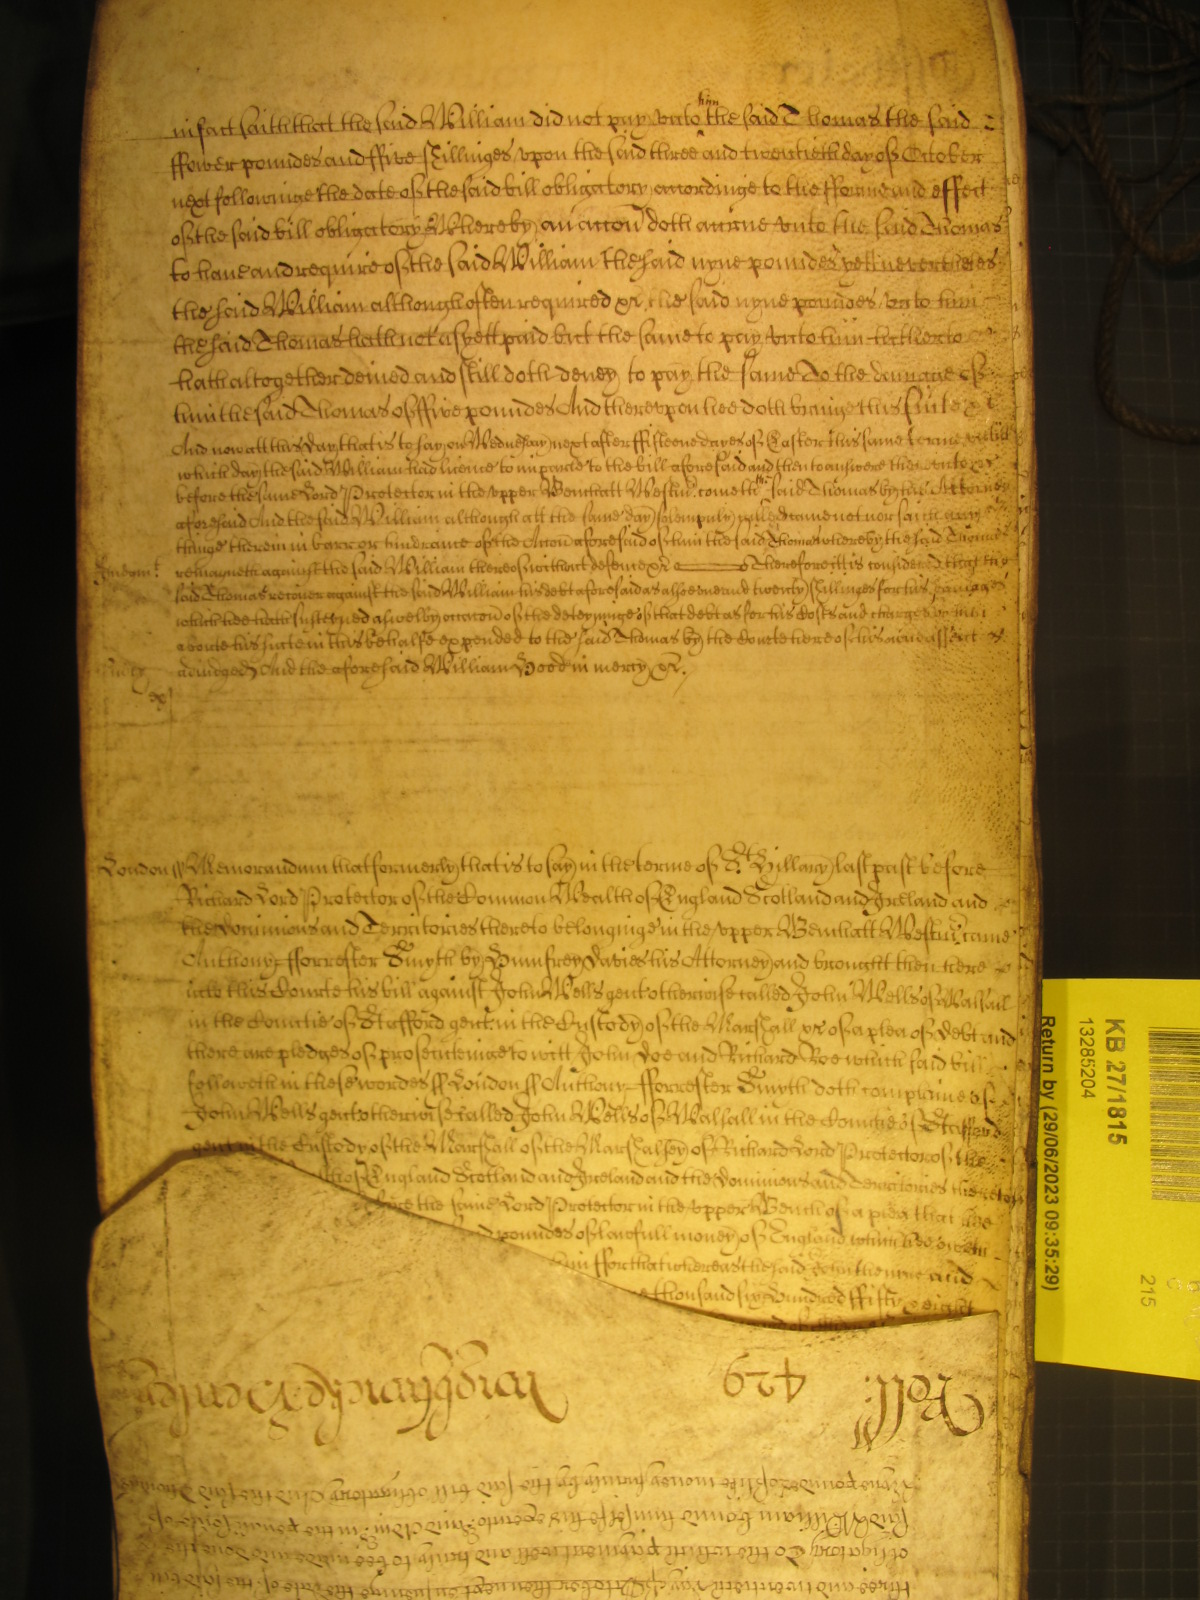 in fact saith that the said William did not pay unto him the said Thomas the said
ffower poundes and ffive shillinges upon the said three and twentieth day of October
next followinge the date of the said bill obligatory accordinge to the fforme and effect
of the said bill obligatory Whereby an accon doth accrue unto the said Thomas
to have and require of the said William the said nyne poundes yett neverthelesse
the said William although often required &c the said nyne poundes unto him
the said Thomas hath not as yett paid but the same to pay unto him hitherto
hath altogether denied and still doth deney to pay the same To the damage of
him the said Thomas of ffive poundes And thereupon hee doth bringe this suite &c
And now att this day that is to say on Wednesday next after ffifteene dayes of Easter this same terme untill
which day the said William had licence to imparle to the bill aforesaid and then to answere the unto &c
before the same Lord Protector in the upper Bench att Westmr. come th the said Thomas by his Attorney
aforesaid And the said William although att the same day solempnly called came not nor saith any
thinge therein in barr or hinderance of the Accon aforesaid of him the said Thomas whereby the said Thomas
remayneth against the said William thereof without defense &c Therefore itt is considered that the
Judgmt.
said Thomas recover against the said William his debt aforesaid as alsoe one and twenty shillinges for his damages
which hee hath susteyned aswell by occacon of the deteyninge of that debt as for his Costs and charges
aboute his suite in this behalfe expended to the said Thomas by the Courte here of his assent
adiudged And the aforesaid William Good in mercy &c.
London ss Memorandum that formerly that is to say in the terme of St. Hillary last past before
Richard Lord Protector of the Common Wealth of England Scotland and Ireland and
the Dominions and Territories thereto belonginge in the upper Bench att Westmr. came
Anthony fforrester Smyth by Humfrey Davies his Attorney and brought then here
into this Courte his bill against John Wells gent otherwise called John Wells of Walsall
in the Countie of Stafford gent in the Custody of the Marshall &c of a plea of Debt and
there are pledges of prosecuteinge to witt John Doe and Richard Roe which said bill
followeth in these wordes ss London ss Anthony fforrester Smyth doth complaine of
John Wells gent otherwise called John Wells of Walsall in the Countie of Stafford
gent in the Custody of the Marshall of the Marshalsey of Richard Lord Protector of the
of England Scotland and Ireland and the Dominions and Territories thereto
before the same Lord Protector in the upper Bench of a plea that hee
poundes of lawfull money of England which hee oweth
him ffor that whereas the said John the nyne and
thousand six hundred ffifty &  eight
Roll: 429
nyne poundes of like money by the said bill obligatory
said William bound himselfe
obligatory To the which payment well and truly to bee made and done the
three and twentieth day of October then next ensueinge the date of the said bill
KB 27/1815
13285204
Return by (29/06/2023 09:35:29)
215